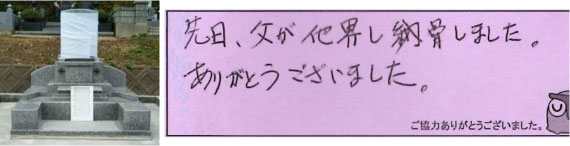 先日、父が他界し納骨しました。
ありがとうございました。
ご協力ありがとうございました。